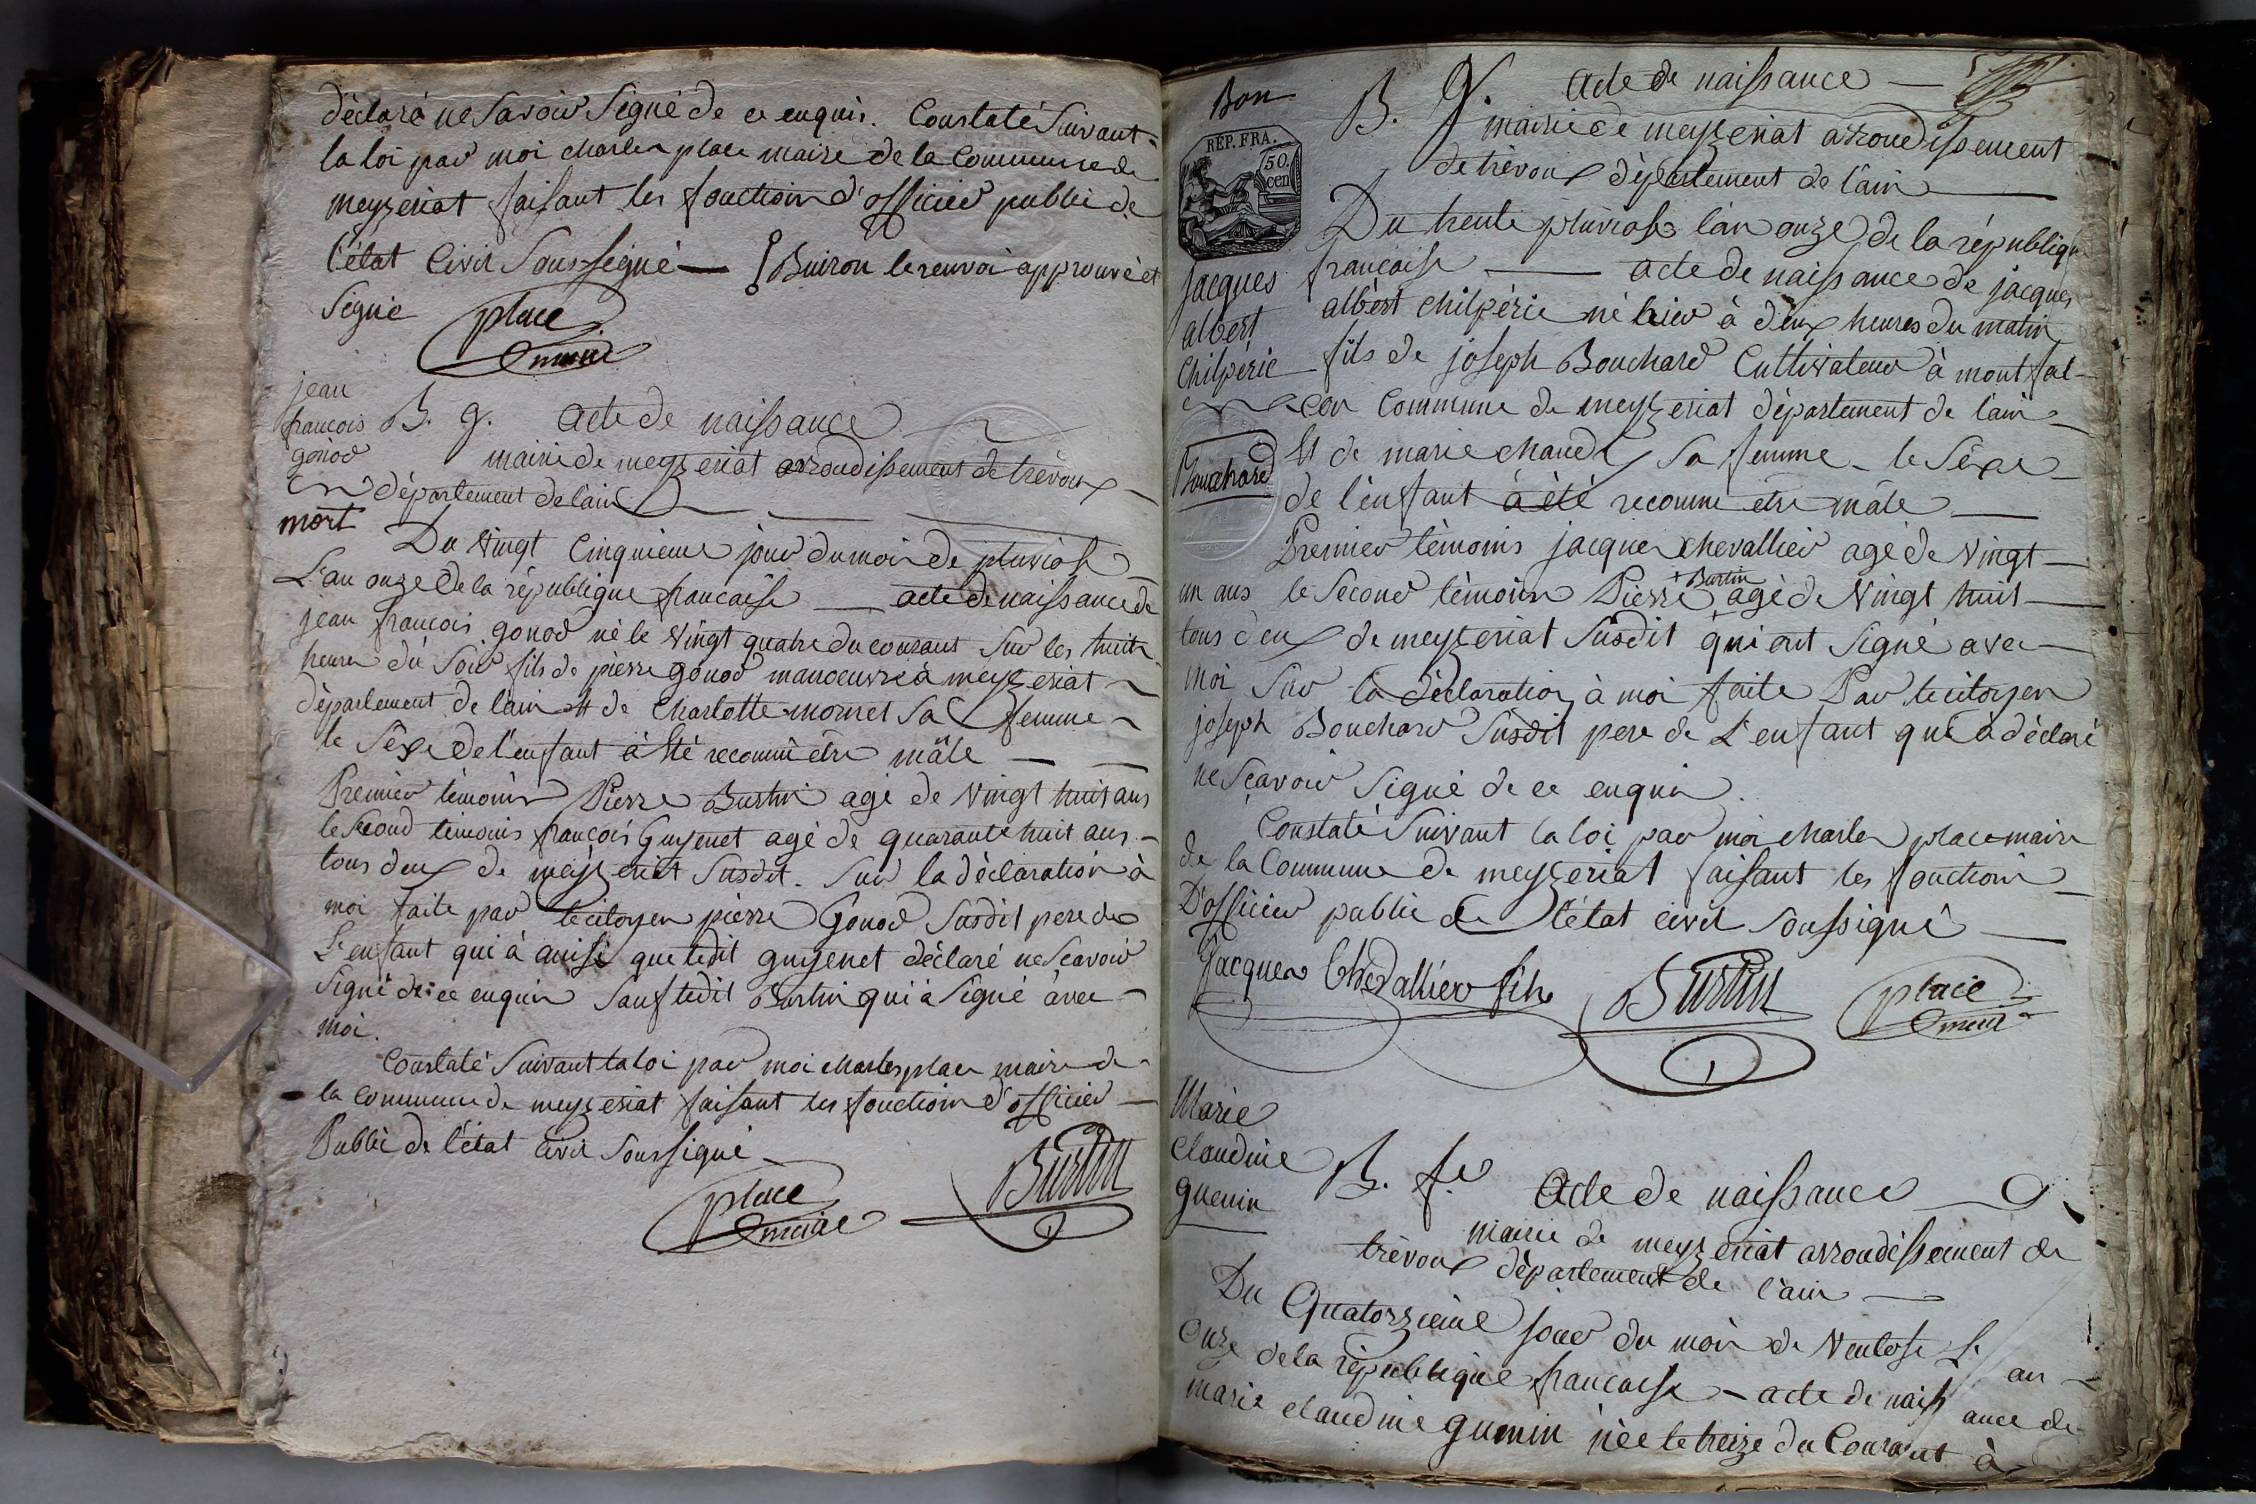 déclaré ne Savoir Signé de ce enquis. Constaté Suivant
la loi par moi charles place maire de la Commune de
meyzeriat faisant les fonction d'officier public de
l'état Civil Sousigné — Buiron le renvoi approuvé et
Signé
place
maire
jean
francois
gonod
mort
B. g. acte de naissance
mairie de meyzeriat arrondissement de trévoux
département de lain
Du Vingt Cinquieme jour du mois de pluviose
L'an onze de la république francaise — acte de naissance de
jean francois gonod né le Vingt quatre du courant Sur les huit
heures du Soir fils de pierre gonod manoeuvre à meyzeriat
département de lain et de Charlotte mornet Sa femme
le Séxe de l'enfant à été reconnu être mâle
Premier témoins Pierre Burtin agé de Vingt huit ans
le Second témoins françois Guyenet agé de quarante huit ans
tous deux de meyzeriat Susdit. Sur la déclaration à
moi faite par le citoyen pierre Gonod Susdit pere de
L'enfant qui à ausi que ledit guyenet déclaré ne Scavoir
Signé de ce enquis Sauf ledit Burtin qui à Signé avec
moi.
Constaté Suivant la loi par moi charles place maire de
la Commune de meyzeriat faisant les fonction d'officier
Public de l'état Civil Soussigné
place
maire
Burtin
Bon
REP. FRA.
50.
cen
jacques
albert
Chilpéric
Bouchard
B. g. acte de naissance
mairie de meyzeriat arrondissement
de trévoux département de l'ain
Du trente pluviose l'an onze de la républiqu
francaise — acte de naissance de jacques
albert Chilpéric né hier à deux heures du matin
fils de joseph Bouchard Cultivateur à montfal-
con Commune de meyzeriat département de l'ain
Et de marie chaudy Sa femme - le Séxe
de l'enfant à été reconnu être mâle
Premier témoins jacques chevallier agé de Vingt
un ans le Second témoin Pierre + Burtin agé de Vingt huit
tous deux de meyzeriat Susdit qui ont Signé avec
moi Sur la déclaration à moi faite Par le citoyen
joseph Bouchard Susdit pere de L'enfant qui a déclaré
ne Sçavoir Signé de ce enquis.
Constaté Suivant la loi par moi charles place maire
de la Commune de meyzeriat faisant les fonction
D'officier public de l'état civil Soussigné
jacques Chevallier fils
Burtin
place
maire
Marie
Claudine
guenin
B. f.e Acte de naissance
mairie de meyzeriat arrondissement de
trévoux département de l'ain
Du Quatorzieme jour du mois de Ventose L'an
onze de la république francaise - acte de naissance de
marie claudine guenin née le treize du Courant à